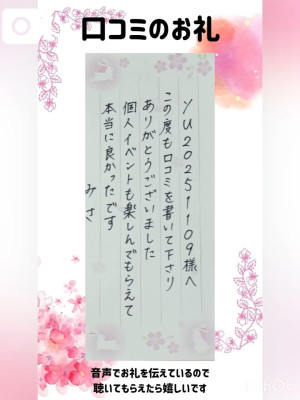 口コミのお礼
YU20251109様へ
この度も口コミを書いて下さり
ありがとうございました
個人イベントも楽しんでもらえて
本当に良かったです
みさ
音声でお礼を伝えているので
聴いてもらえたら嬉しいです